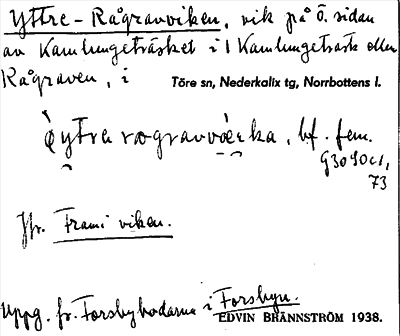 Yttre-Rågravviken, vik på ö. sidan
av Kamlungeträsket i l Kamlungeträsk eller
Rågraven, i Töre sn, Nederkalix tg, Norrbottens l.
bf. fem.
73
Jfr. Frami viken.
Uppg. fr. Forsbybodarna i Forsbyn.
EDVIN BRÄNNSTRÖM 1938.